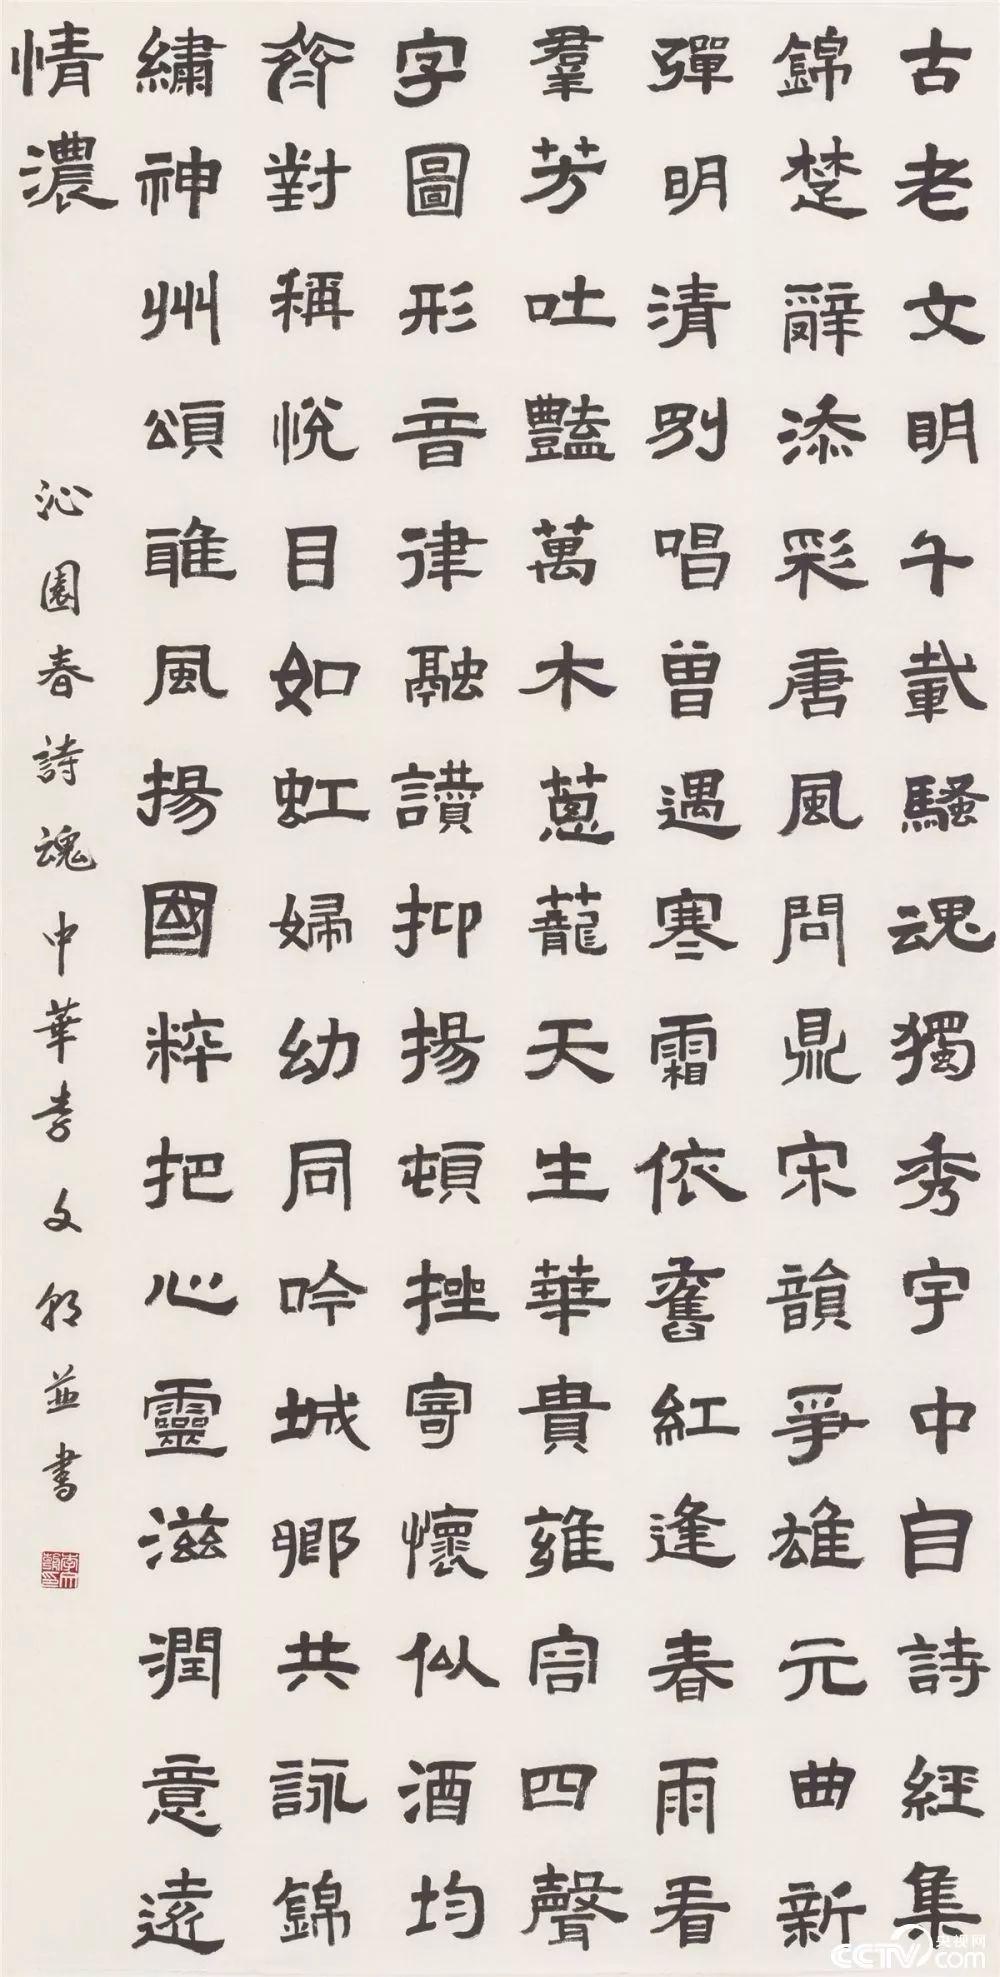 古老文明千載騷魂獨秀宇中自詩經集
錦楚辭添彩唐風問鼎宋韻爭雄元曲新
彈明清別唱曾遇寒霜依舊紅逢春雨看
羣芳吐豔萬木蔥蘢天生華貴雍容四聲
字圖形音律融讀抑揚頓挫寄懷似酒均
齊對稱悅目如虹婦幼同吟城鄉共詠錦
繡神州頌雅風揚國粹把心靈滋潤意遠
情濃
沁園春詩魂中華李文朝並書
央视网
CCTV.com